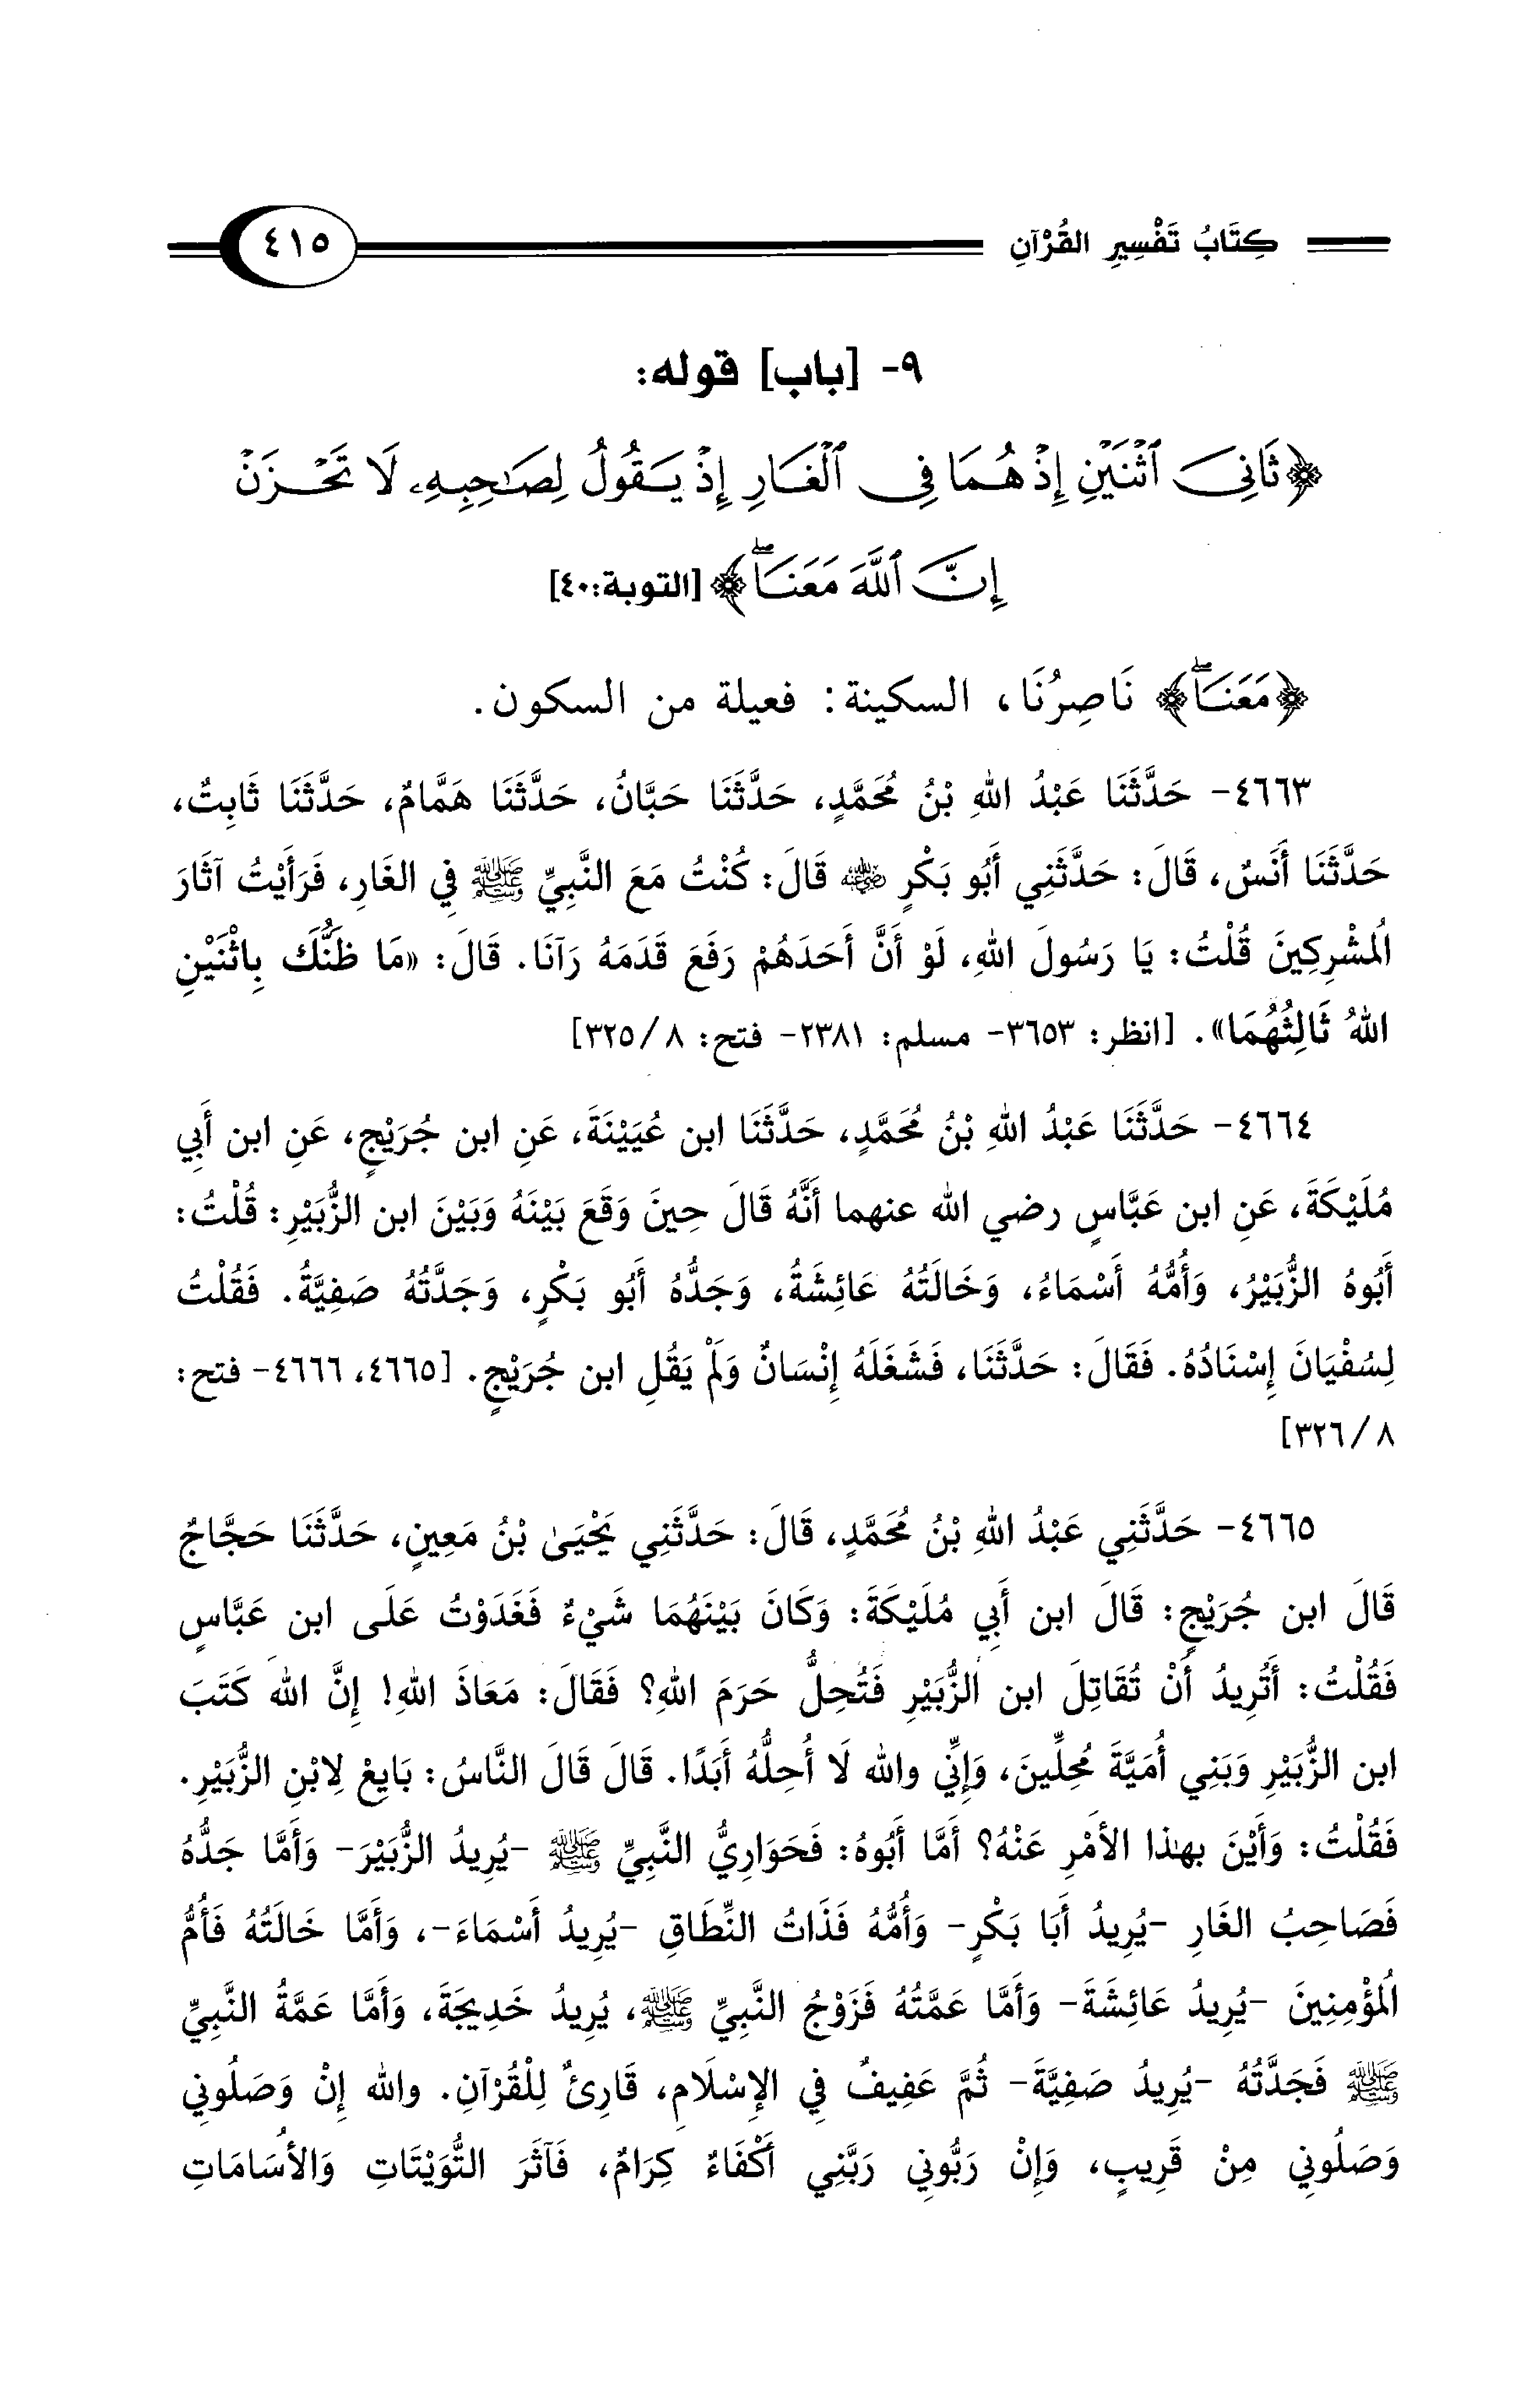 كِتَابُ تَفْسِيرِ القُرْآنِ ٤١٥
٩- [باب] قوله:
﴿ثَانِيَ ٱثْنَيْنِ إِذْ هُمَا فِي ٱلْغَارِ إِذْ يَقُولُ لِصَٰحِبِهِۦ لَا تَحْزَنْ
إِنَّ ٱللَّهَ مَعَنَاۖ﴾ [التوبة:٤٠]
﴿مَعَنَاۖ﴾ نَاصِرُنَا، السكينة: فعيلة من السكون.
٤٦٦٣- حَدَّثَنَا عَبْدُ اللهِ بْنُ مُحَمَّدٍ، حَدَّثَنَا حَبَّانُ، حَدَّثَنَا هَمَّامٌ، حَدَّثَنَا ثَابِتٌ،
حَدَّثَنَا أَنَسٌ، قَالَ: حَدَّثَنِي أَبُو بَكْرٍ ﵁ قَالَ: كُنْتُ مَعَ النَّبِيِّ ﷺ فِي الغَارِ، فَرَأَيْتُ آثَارَ
اُلمشْرِكِينَ قُلْتُ: يَا رَسُولَ اللهِ، لَوْ أَنَّ أَحَدَهُمْ رَفَعَ قَدَمَهُ رَآنَا. قَالَ: «مَا ظَنُّكَ بِاثْنَيْنِ
اللهُ ثَالِثُهُمَا». [انظر: ٣٦٥٣- مسلم: ٢٣٨١- فتح: ٨/ ٣٢٥]
٤٦٦٤- حَدَّثَنَا عَبْدُ اللهِ بْنُ مُحَمَّدٍ، حَدَّثَنَا ابن عُيَيْنَةَ، عَنِ ابن جُرَيْجٍ، عَنِ ابن أَبِي
مُلَيْكَةَ، عَنِ ابن عَبَّاسٍ رضي الله عنهما أَنَّهُ قَالَ حِينَ وَقَعَ بَيْنَهُ وَبَيْنَ ابن الزُّبَيْرِ: قُلْتُ:
أَبُوهُ الزُّبَيْرُ، وَأُمُّهُ أَسْمَاءُ، وَخَالَتُهُ عَائِشَةُ، وَجَدُّهُ أَبُو بَكْرٍ، وَجَدَّتُهُ صَفِيَّةُ. فَقُلْتُ
لِسُفْيَانَ إِسْنَادُهُ. فَقَالَ: حَدَّثَنَا، فَشَغَلَهُ إِنْسَانٌ وَلَمْ يَقُلِ ابن جُرَيْجٍ. [٤٦٦٥، ٤٦٦٦- فتح:
٨/ ٣٢٦]
٤٦٦٥- حَدَّثَنِي عَبْدُ اللهِ بْنُ مُحَمَّدٍ، قَالَ: حَدَّثَنِي يَحْيَىٰ بْنُ مَعِينٍ، حَدَّثَنَا حَجَّاجٌ
قَالَ ابن جُرَيْجٍ: قَالَ ابن أَبِي مُلَيْكَةَ: وَكَانَ بَيْنَهُمَا شَيْءٌ فَغَدَوْتُ عَلَى ابن عَبَّاسٍ
فَقُلْتُ: أَتُرِيدُ أَنْ تُقَاتِلَ ابن الزُّبَيْرِ فَتُحِلُّ حَرَمَ اللهِ؟ فَقَالَ: مَعَاذَ اللهِ! إِنَّ اللهَ كَتَبَ
ابن الزُّبَيْرِ وَبَنِي أُمَيَّةَ مُحِلِّينَ، وَإِنِّي والله لَا أُحِلُّهُ أَبَدًا. قَالَ قَالَ النَّاسُ: بَايِعْ لاِبْنِ الزُّبَيْرِ.
فَقُلْتُ: وَأَيْنَ بهٰذا الأَمْرِ عَنْهُ؟ أَمَّا أَبُوهُ: فَحَوَارِيُّ النَّبِيِّ ﷺ -يُرِيدُ الزُّبَيْرَ- وَأَمَّا جَدُّهُ
فَصَاحِبُ الغَارِ -يُرِيدُ أَبَا بَكْرٍ- وَأُمُّهُ فَذَاتُ النِّطَاقِ -يُرِيدُ أَسْمَاءَ-، وَأَمَّا خَالَتُهُ فَأُمُّ
اُلمؤْمِنِينَ -يُرِيدُ عَائِشَةَ- وَأَمَّا عَمَّتُهُ فَزَوْجُ النَّبِيِّ ﷺ، يُرِيدُ خَدِيجَةَ، وَأَمَّا عَمَّةُ النَّبِيِّ
ﷺ فَجَدَّتُهُ -يُرِيدُ صَفِيَّةَ- ثُمَّ عَفِيفٌ فِي الإِسْلَامِ، قَارِئٌ لِلْقُرْآنِ. والله إِنْ وَصَلُونِي
وَصَلُونِي مِنْ قَرِيبٍ، وَإِنْ رَبُّونِي رَبَّنِي أَكْفَاءٌ كِرَامٌ، فَآثَرَ التُّوَيْتَاتِ وَالأُسَامَاتِ